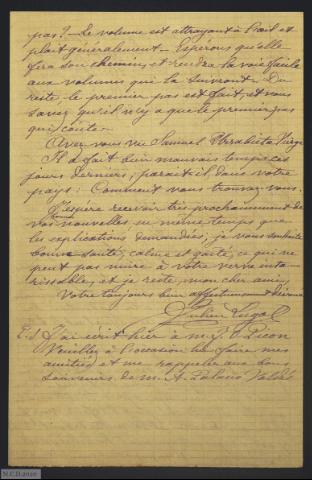 pas? - Le volume est attrayant à l'œil et
plait généralement - Espérons qu'elle
fera son chemin, et rendra la voie facile
aux volumes qui la suivront - Du
reste, le premier pas est fait, et vous
savez qu'il n'y a que le premier pas
qui coûte -
Avez vous vu Samuel Urrabieta Vierge
Il a fait bien mauvais temps ces
jours derniers, parait il, dans votre
pays: Comment vous trouvez vous.
J'espère recevoir très prochainement de
vos nouvelles en même temps que
les explications demandées; je vous souhaite
bonne santé, calme et gaité, ce qui ne
peut pas nuire à votre verve inta-
rissable, et je reste, mon cher ami,
Votre toujours bien affectionné et dévoué
Julien Lugol
P.S J'ai écrit hier à M. J. O Picon
Veuillez à l'occasion lui faire mes
amitiés et me rappeler aux bons
souvenirs de M. A. Palacio Valdés
N.C.D.